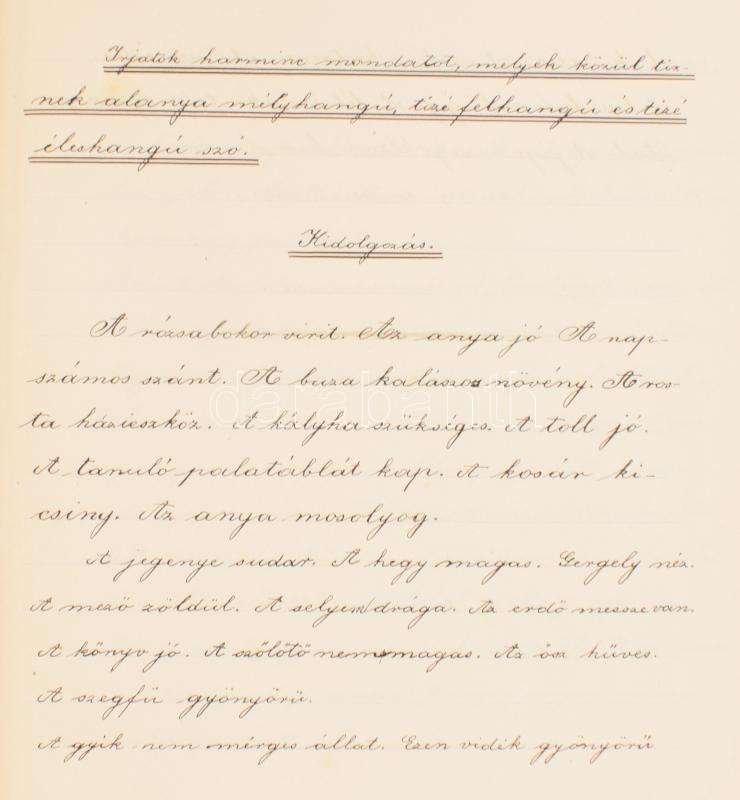 Irjatok harminc mondatot, melyek közül tiz-
nek alanya mélyhangú, tizé felhangú és tizé
éleshangú szó.
Kidolgozás.
A rózsabokor virit. Az anya jó A nap-
számos szánt. A buza kalászos növény. A ros-
ta házieszköz. A kályha szükséges. A toll jó.
darabanth
A tanuló palatáblát kap. A kosár ki-
csiny. Az anya mosolyog.
A jegenye sudar. A hegy magas. Gergely néz.
A mező zöldül. A selyem drága. Az erdő messze van.
A könyv jó. A szőlőtő nem magas. Az ősz hüves.
A szegfü gyönyörü.
A gyik nem mérges állat. Ezen vidék gyönyörü